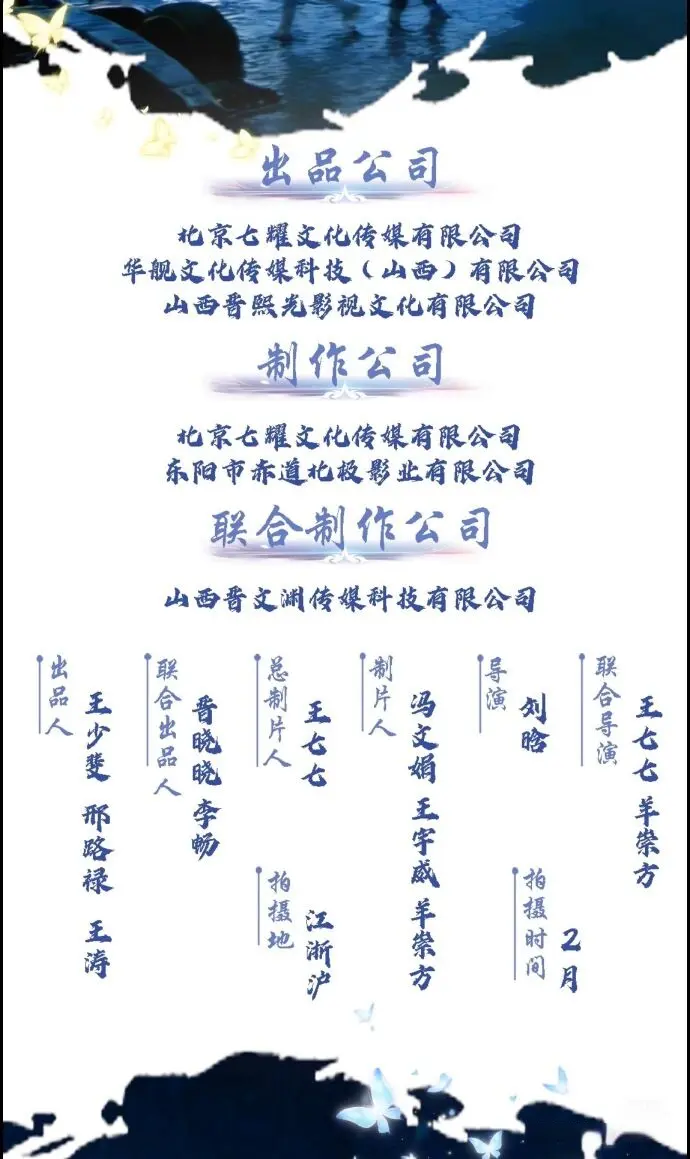 出品公司
北京七耀文化传媒有限公司
华舰文化传媒科技（山西）有限公司
山西晋熙光影视文化有限公司
制作公司
北京七耀文化传媒有限公司
东阳市赤道北极影业有限公司
联合制作公司
山西晋文渊传媒科技有限公司
出品人
王少斐 邢路禄 王涛
联合出品人
晋晓晓 李畅
总制片人
王七七
制片人
冯文娟 王宇威 羊崇方
导演
刘晗
联合导演
王七七 羊崇方
拍摄地
江浙沪
拍摄时间
2月